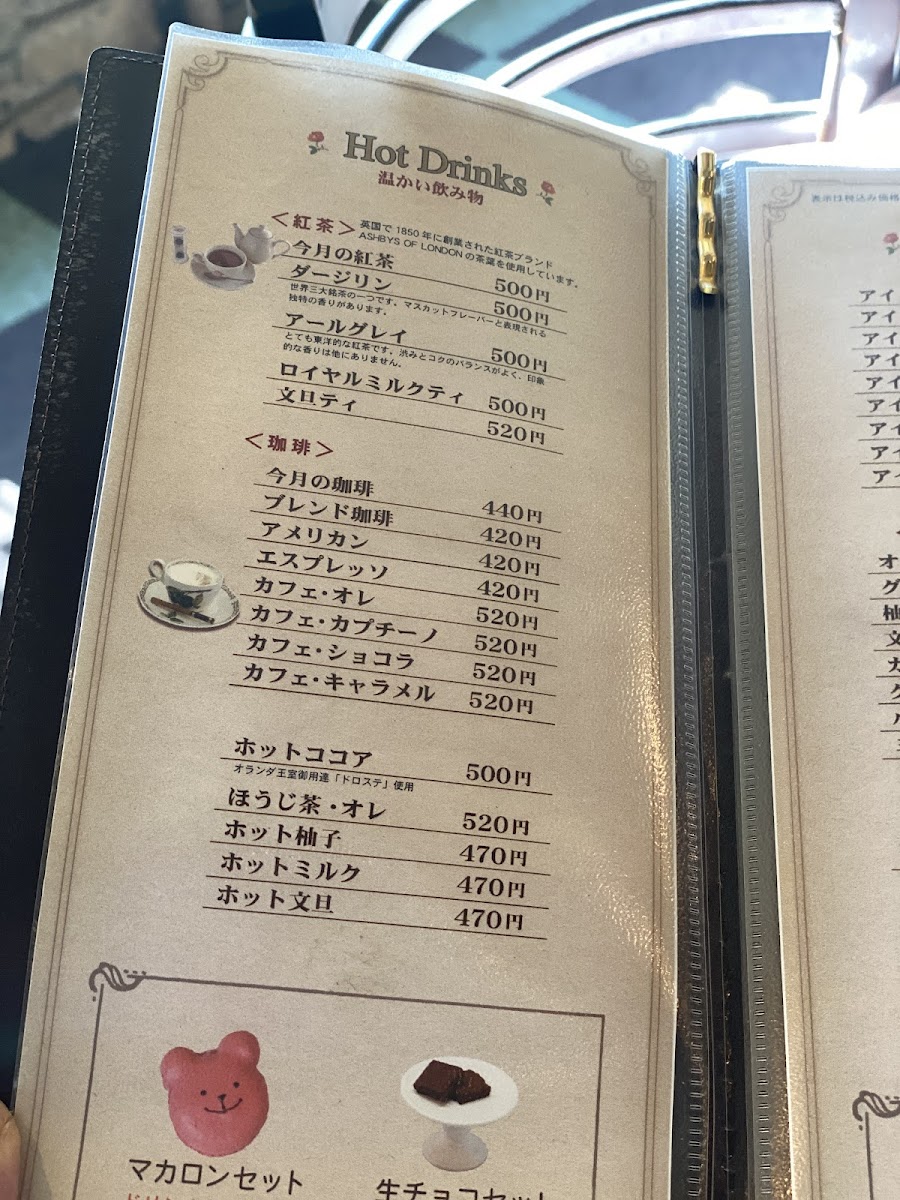 Hot Drinks
温かい飲み物
＜紅茶＞ 英国で1850年に創業された紅茶ブランド
ASHBYS OF LONDONの茶葉を使用しています。
今月の紅茶 500円
ダージリン 500円
世界三大銘茶の一つです。マスカットフレーバーと表現される
独特の香りがあります。
アールグレイ 500円
とても東洋的な紅茶です。渋みとコクのバランスがよく、印象
的な香りは他にありません。
ロイヤルミルクティ 500円
文旦ティ 520円
＜珈琲＞
今月の珈琲 440円
ブレンド珈琲 420円
アメリカン 420円
エスプレッソ 420円
カフェ・オレ 520円
カフェ・カプチーノ 520円
カフェ・ショコラ 520円
カフェ・キャラメル 520円
ホットココア 500円
オランダ王室御用達「ドロステ」使用
ほうじ茶・オレ 520円
ホット柚子 470円
ホットミルク 470円
ホット文旦 470円
マカロンセット
生チョコセット
表示は税込み価格
アイ
アイ
アイ
アイ
アイ
アイ
アイ
アイ
アイ
オ
グ
柚
文